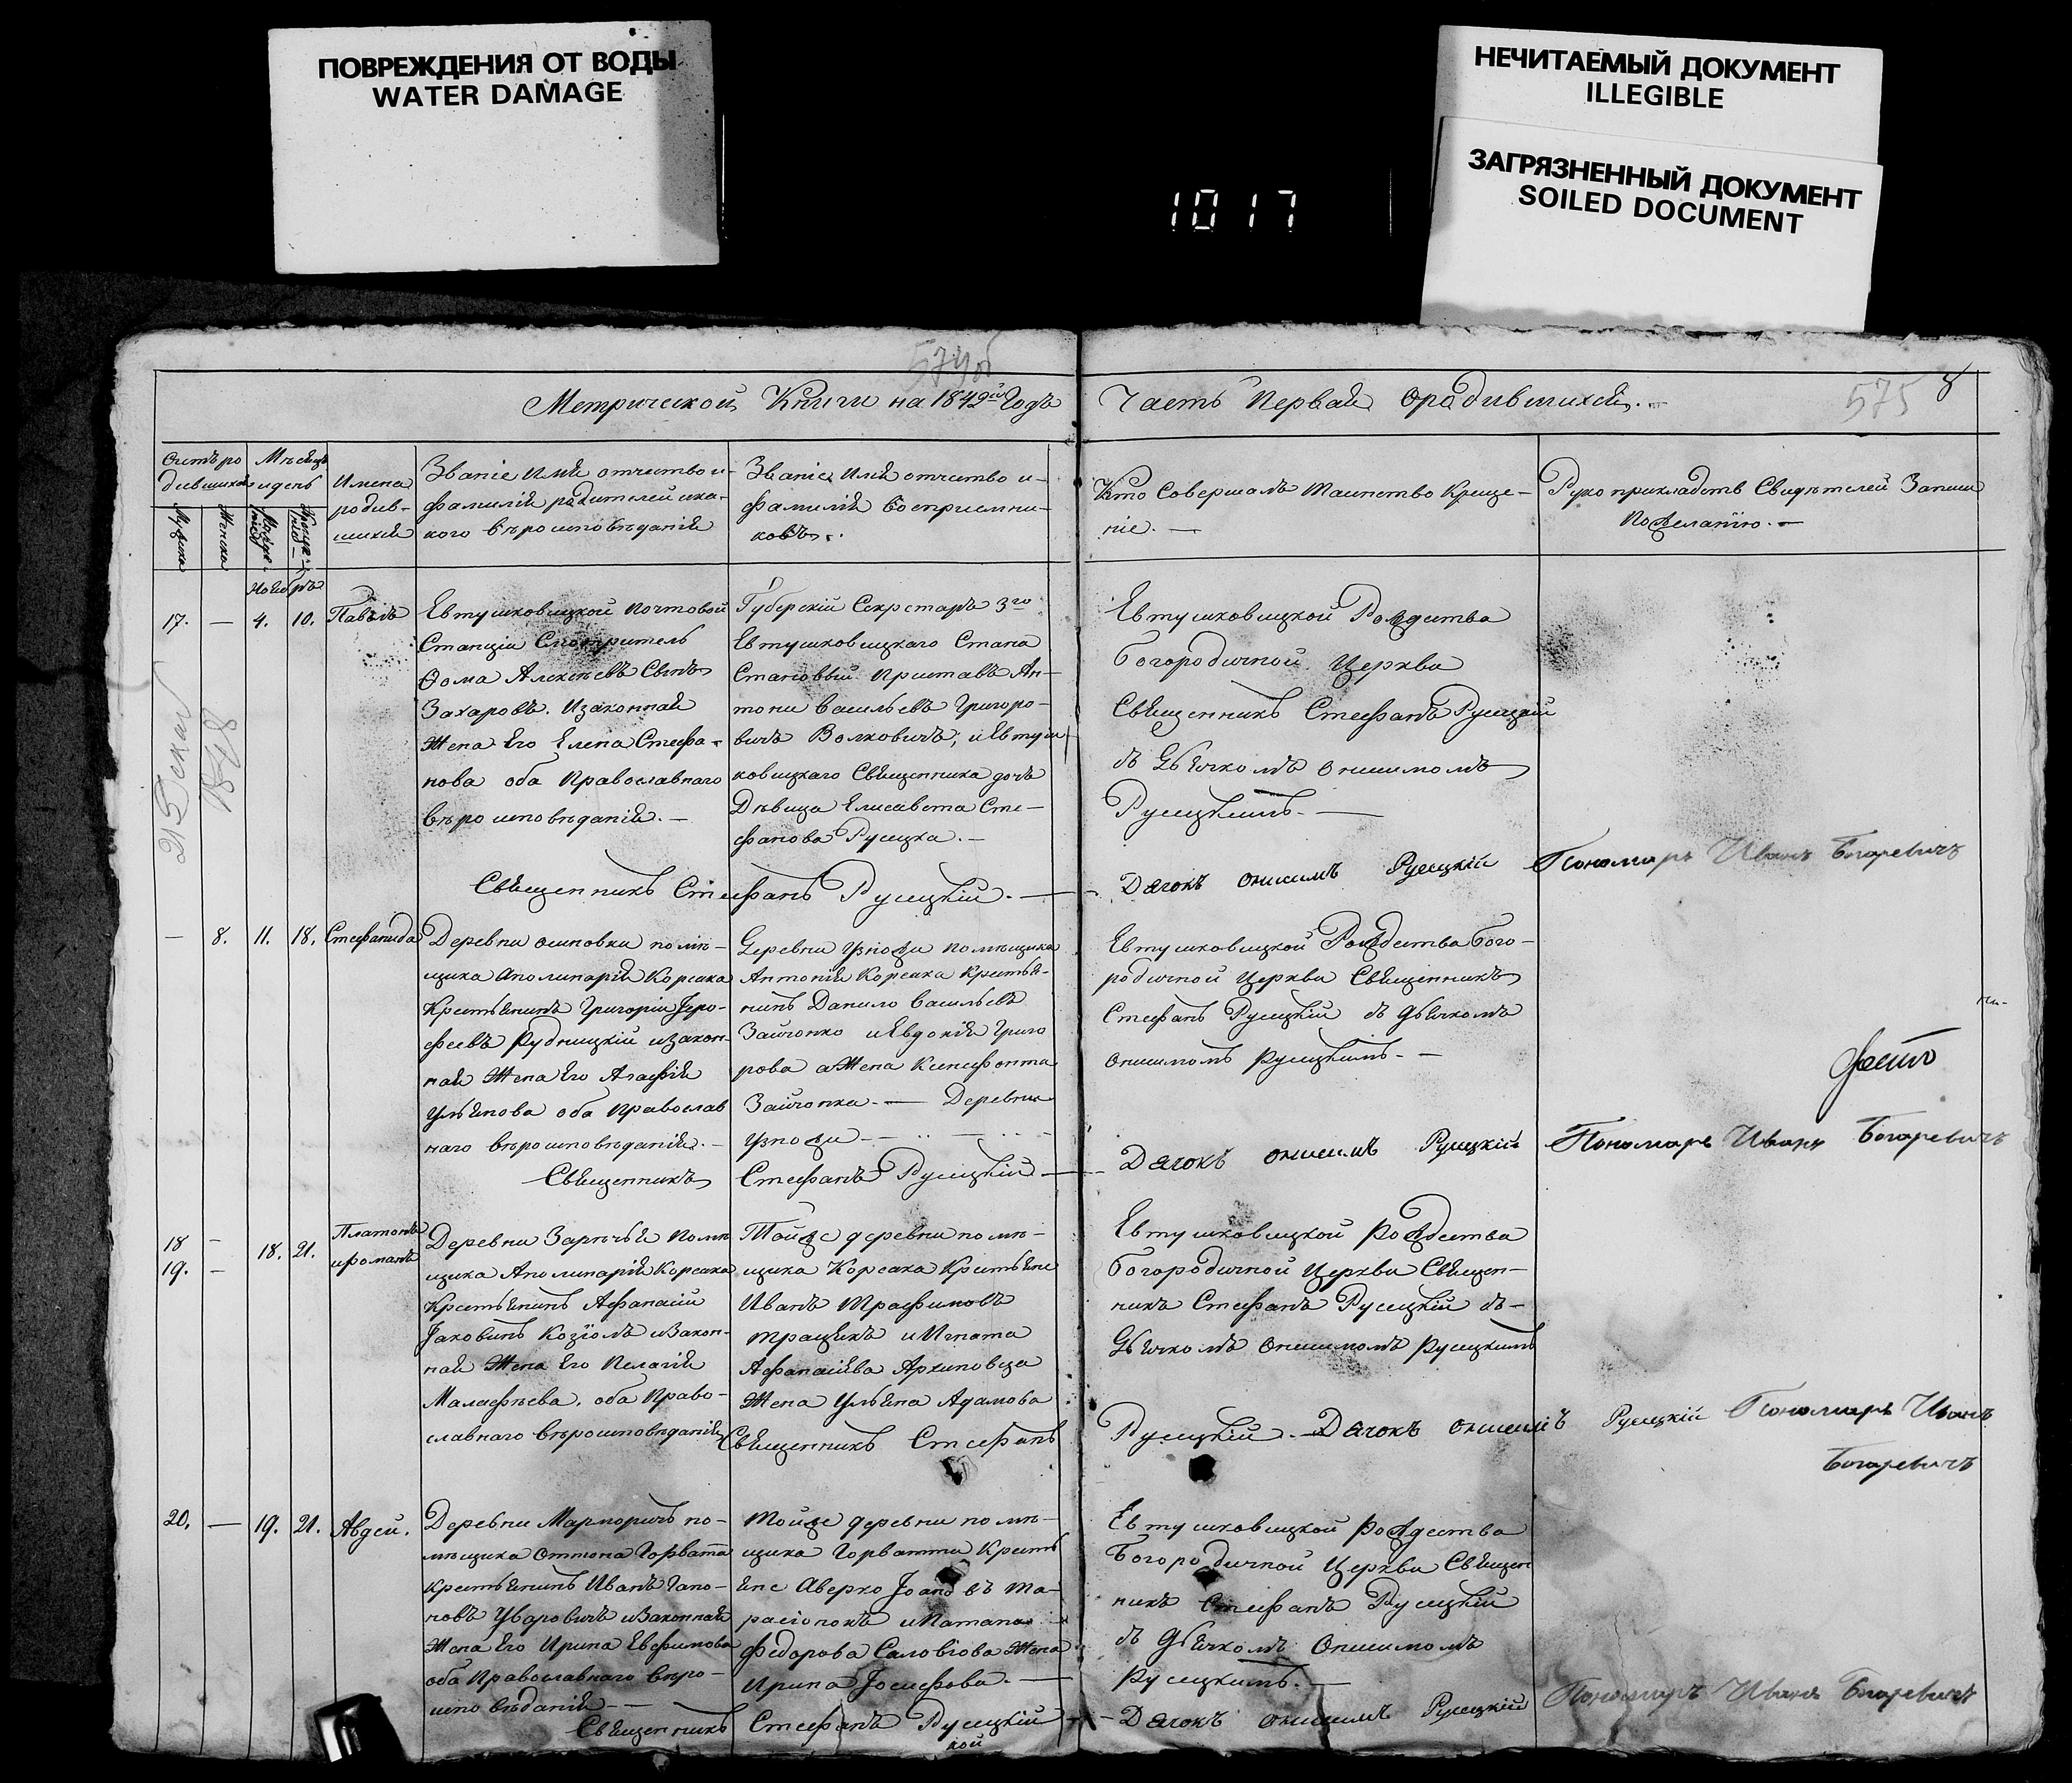 ПОВРЕЖДЕНИЯ ОТ ВОДЫ
WATER DAMAGE
НЕЧИТАЕМЫЙ ДОКУМЕНТ
ILLEGIBLE
ЗАГРЯЗНЕННЫЙ ДОКУМЕНТ
SOILED DOCUMENT
1017
574об
Метрической Книги на 1842й Годъ
Часть Первая Ородившихся.
575 8
Счетъ родившихся
Мѣсяцъ и день
Имена
родив-
шихся
Званіе Имя отчество и
фамилія родителей ика-
кого вѣроисповѣданія
Званіе Имя отчество и
фамилія восприемни-
ковъ.
Кто Совершалъ Таинство Креще-
ніе.
Рукоприкладств Свидѣтелей Записи
Пожеланію.
Ноябръ
17. — 4. 10. Павелъ
Евтушковицкой почтовой
Станціи Смотритель
Ѳома Алексѣевъ Сынъ
Захаровъ. Изаконная
Жена Его Елена Стефа-
нова оба Православнаго
вѣроисповѣданія.
Губерскій Секретаръ 3го
Евтушковицкаго Стана
Становый приставъ Ан-
тони васильевъ Григоро-
вичъ Волковичъ; иЕвтуш
ковицкаго Священника дочь
Дѣвица Елисавета Сте-
фанова Русецка.
Евтушковицкой Рождества
богородичной Церкви
Священникъ Стефанъ Русецкій
съ Дьячкомъ Онисимомъ
Русецкимъ.
Священникъ Стефанъ Русецкій.
Дячокъ Онисимъ Русецкій
Пономаръ Иванъ Богаревичъ
— 8. 11. 18. Стефанида
Деревни осиповки помѣ-
щика Аполинарія Корсака
Крестьянинъ Григорій Јеро-
феевъ Рудницкій изакон-
ная Жена Его Агафія
Ульянова оба Православ
наго вѣроисповѣданія.
Деревни Узножи помѣщика
Антонія Корсака Крестья-
нинъ Данило Васильевъ
Зайчонко иЕвдокія Григо
рова аЖена Ксенефонта
Зайчонка. — Деревни
Узножи
Евтушковицкой Рождества Бого-
родичной Церкви Священникъ
Стефанъ Русецкій съ Дьячкомъ
Онисимомъ Русецкимъ.
Священникъ Стефанъ Русецкій
Дячокъ Онисимъ Русецкій
Пономаръ Иванъ Богаревичъ
18 —
19. —
18. 21.
Платонъ
иРоманъ
Деревни Зарѣчья Помѣ
щика Аполинарія Корсака
Крестьянинъ Афанасій
Јаковинъ Козіолъ иЗакон-
ная Жена Его Пелагія
Малафѣева. оба Право-
славнаго вѣроисповѣданія
Тойже деревни помѣ-
щика Корсака Крестьяне
Иванъ Трафимовъ
Трацикъ иИгната
Афанасіева Архиповца
Жена Ульяна Адамова
Евтушковицкой Рождества
богородичной Церкви Священ-
никъ Стефанъ Русецкій съ
Дьячкомъ Онисимомъ Русецкимъ
Священникъ Стефанъ
Русецкій. Дячокъ Онисимъ Русецкій Пономаръ Иванъ
Богаревичъ
20. — 19. 21. Авдей.
Деревни Марморичъ по-
мѣщика Оттона Горвата
крестьянинъ Иванъ Гапо-
новъ Уваровичъ иЗаконная
Жена Его Ирина Евфимова
оба Православнаго вѣро-
исповѣданія
Тойже деревни помѣ-
щика Горватта Кресть
яне Аверко Јоановъ Та-
расіонокъ иПатапа
Федорова Саловіова Жена
Ирина Јосифова.
Евтушковицкой Рождества
Богородичной Церкви Священ
никъ Стефанъ Русецкій
съ Дьячкомъ Онисимомъ
Русецкимъ.
Священникъ Стефанъ Русецкій
Дячокъ Онисимъ Русецкій
Пономаръ Иванъ Богаревичъ